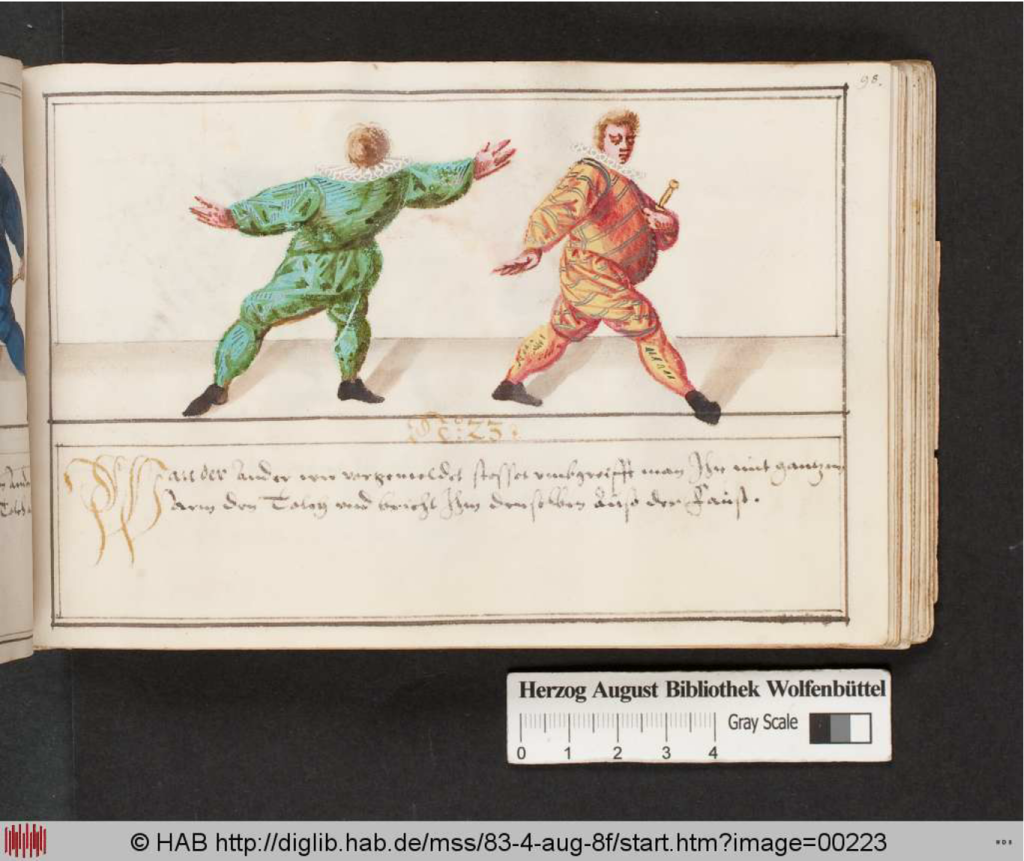 98.
N°: 23.
Wan der ander wie vorgemeldet stosset umbgreifft man Ihn mit gantzem
Arm den Tolch und bricht Ihm denselben auß der Faust.
Herzog August Bibliothek Wolfenbüttel
Gray Scale
0 1 2 3 4
© HAB http://diglib.hab.de/mss/83-4-aug-8f/start.htm?image=00223